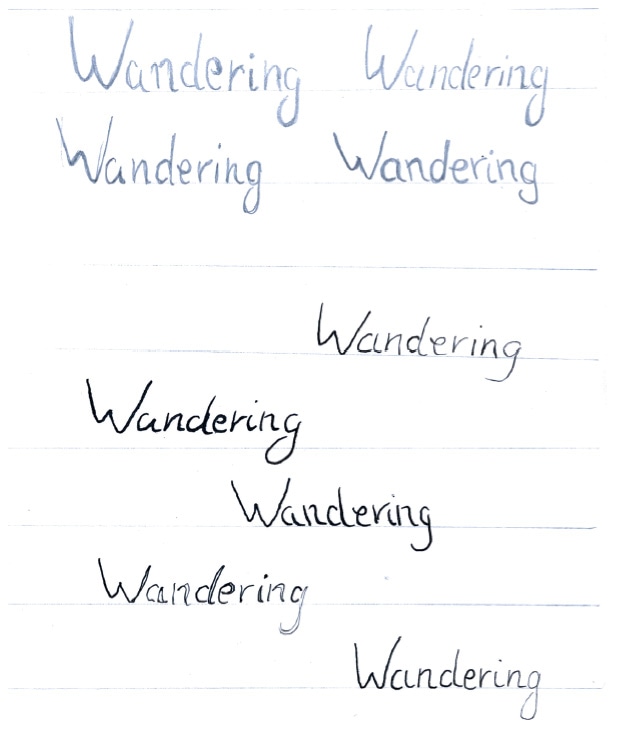 Wandering Wandering
Wandering Wandering
Wandering
Wandering
Wandering
Wandering
Wandering